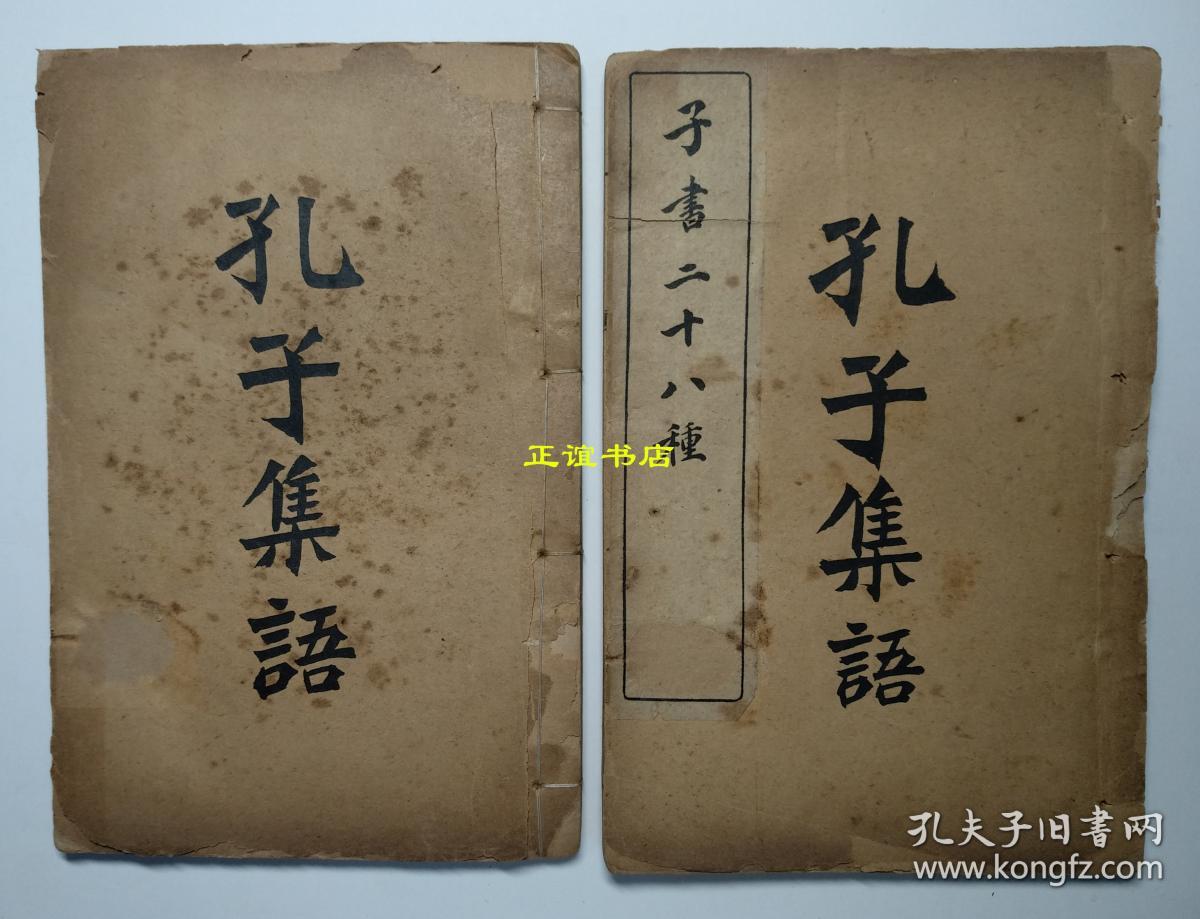 孔子集語
子書二十八種
孔子集語
正谊书店
孔夫子旧書网
www.kongfz.com